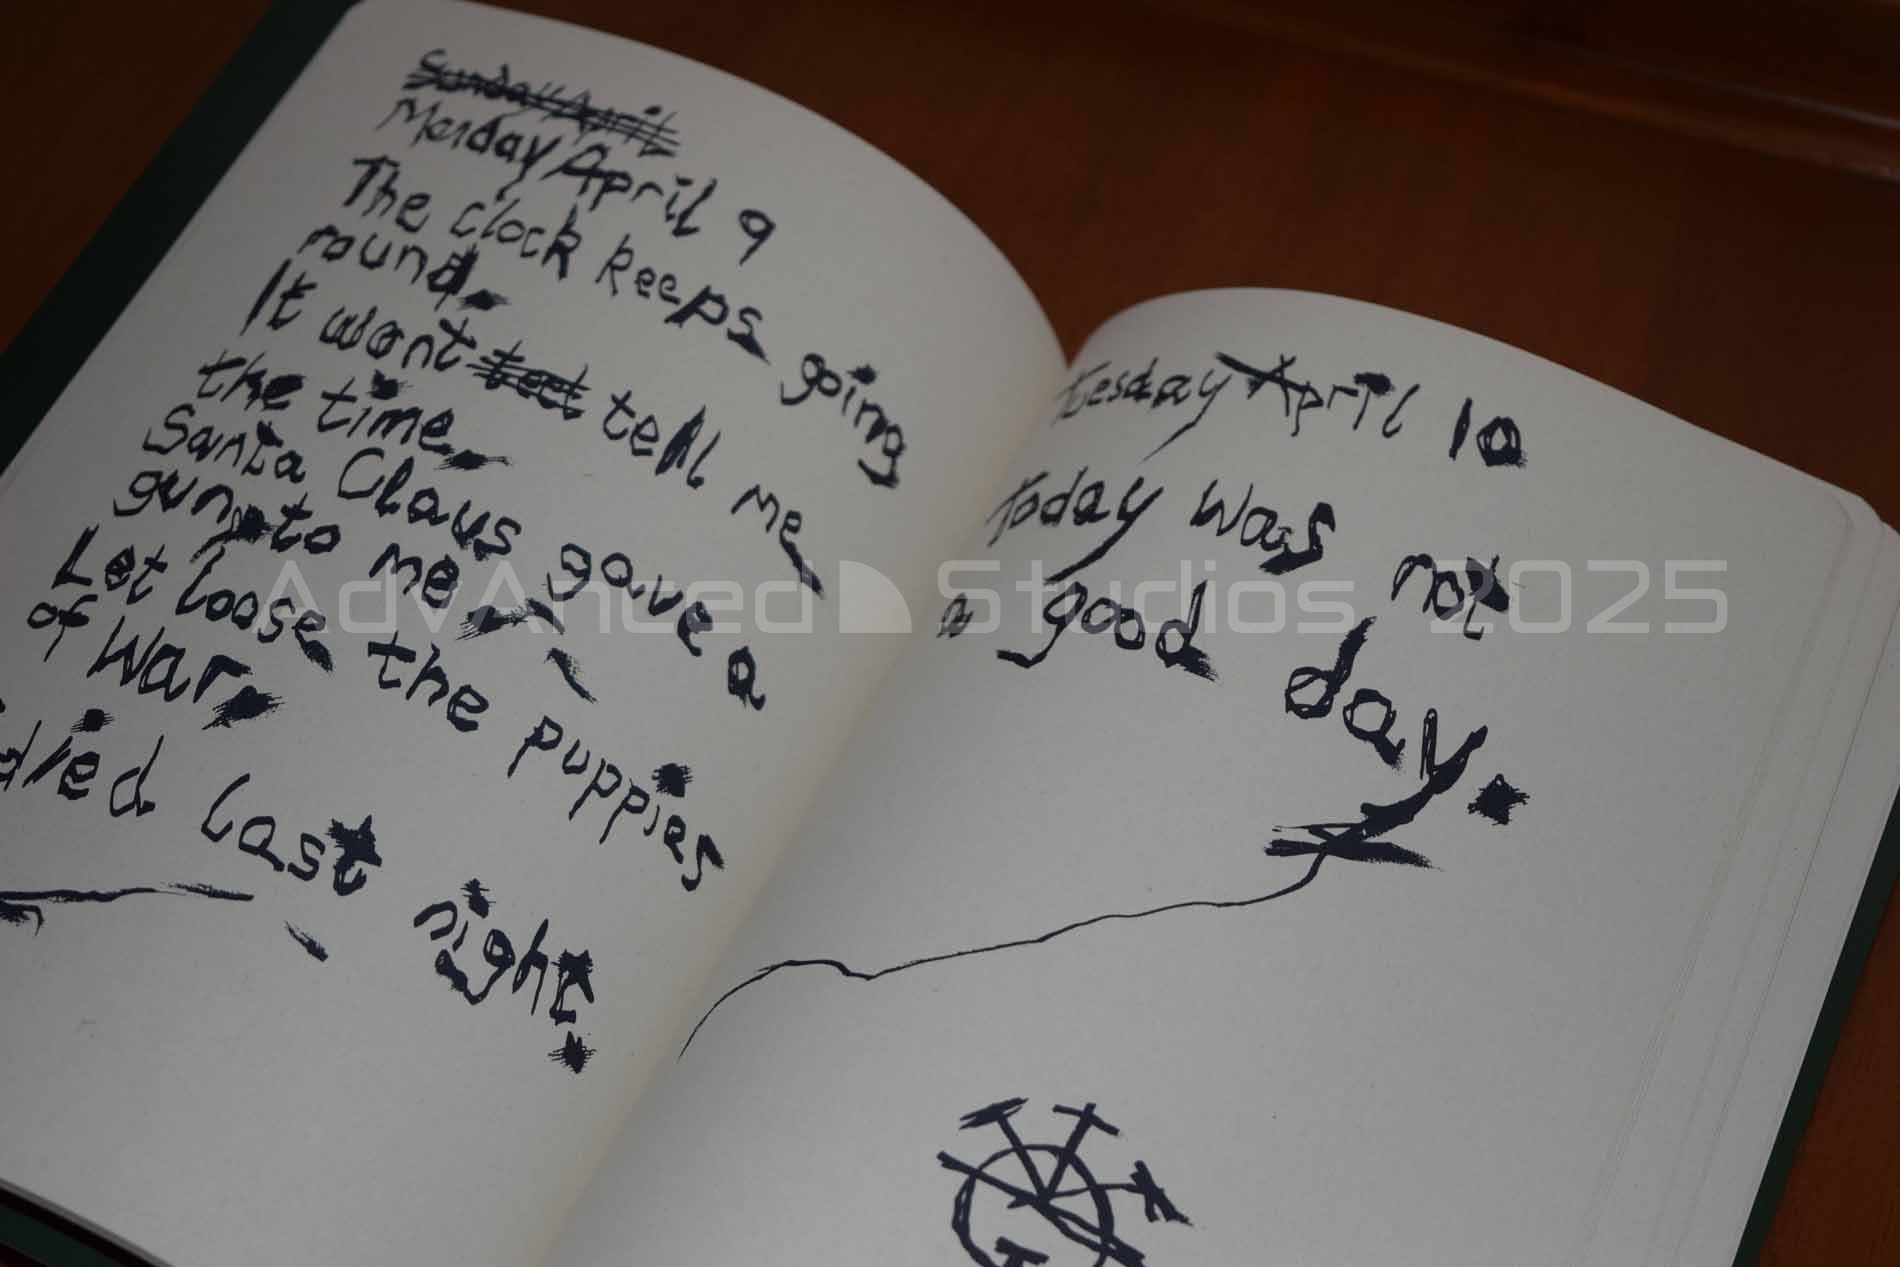 Sunday April
Monday April 9
The clock keeps going
round.
It wont teel tell me
the time.
Santa Claus gave a
gun to me.
Let loose the puppies
of War.
died last night.
tesday April 10
today was not
a good day.
AdvAnced Studios 2025